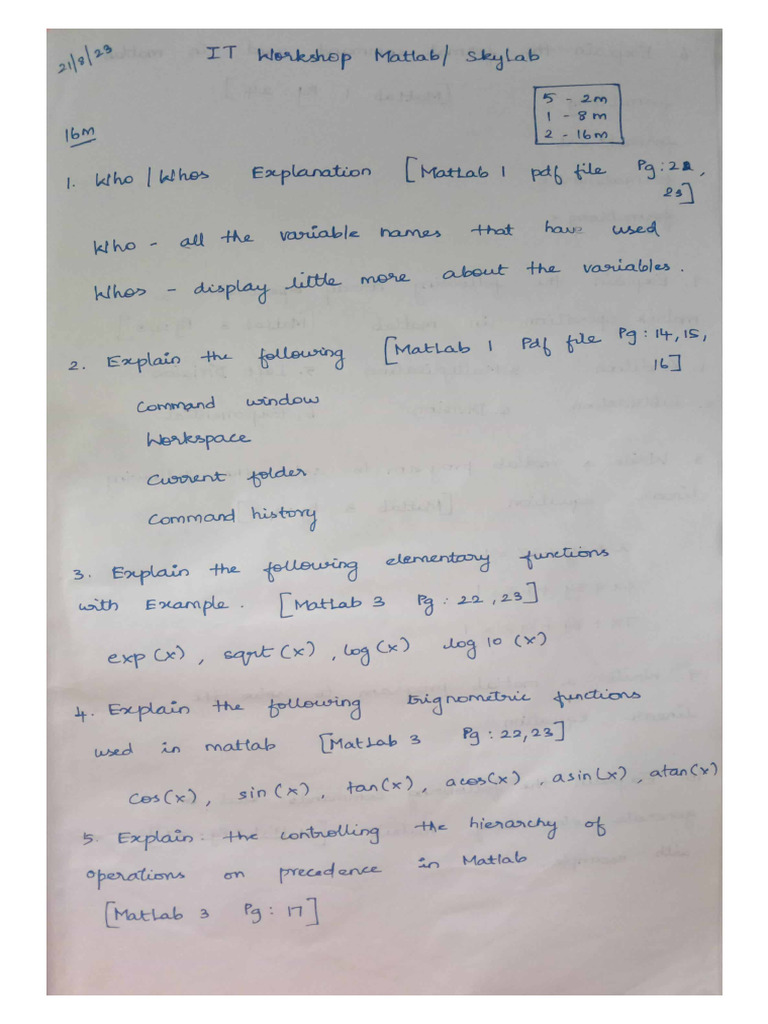 21/8/23
IT Workshop Matlab/ SkyLab
5 - 2m
1 - 8m
2 - 16m
16m
1. Who / Whos Explanation [MatLab 1 pdf file Pg: 22,
23]
Who - all the variable names that have used
Whos - display little more about the variables.
2. Explain the following [MatLab 1 Pdf file Pg: 14, 15,
16]
Command window
Workspace
Current folder
Command history
3. Explain the following elementary functions
with Example. [MatLab 3 Pg: 22, 23]
exp(x), sqrt(x), log(x) log 10 (x)
4. Explain the following trignometric functions
used in matlab [MatLab 3 Pg: 22, 23]
cos(x), sin(x), tan(x), acos(x), asin(x), atan(x)
5. Explain: the controlling the hierarchy of
operations on precedence in Matlab
[MatLab 3 Pg: 17]